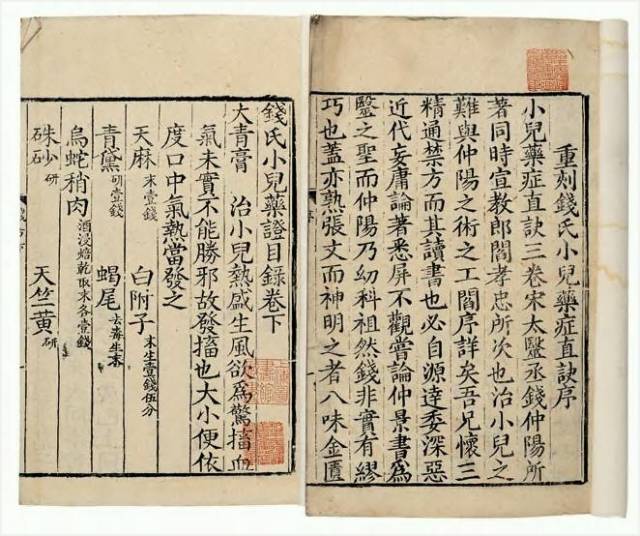 重刻錢氏小兒藥症直訣序
小兒藥症直訣三卷宋太毉丞錢仲陽所
著同時宣教郎閻孝忠所次也治小兒之
難與仲陽之術之工閻序詳矣吾兄懷三
精通禁方而其讀書也必自源達委深惡
近代妄庸論著悉屏不觀嘗論仲景書爲
毉之聖而仲陽乃幼科祖然錢非實有繆
巧也蓋亦熟張文而神明之者八味金匱
錢氏小兒藥證目錄卷下
大青膏 治小兒熱盛生風欲爲驚搐血
氣未實不能勝邪故發搐也大小便依
度口中氣熱當發之
天麻 末壹錢 白附子 末生壹錢伍分
青黛 研壹錢 蝎尾 去毒生末
烏蛇稍肉 酒浸焙乾取末各壹錢
硃砂 研 天竺黃 研